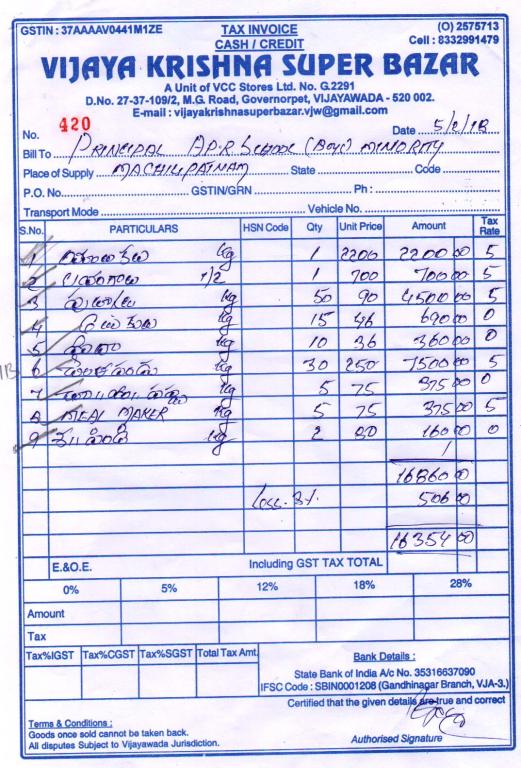 GSTIN : 37AAAAV0441M1ZE TAX INVOICE (O) 2575713
CASH / CREDIT Cell : 8332991479
VIJAYA KRISHNA SUPER BAZAR
A Unit of VCC Stores Ltd. No. G.2291
D.No. 27-37-109/2, M.G. Road, Governorpet, VIJAYAWADA - 520 002.
E-mail : vijayakrishnasuperbazar.vjw@gmail.com
No. 420 Date 5/2/18
Bill To PRINCIPAL A.P.R SCHOOL (Boys) MINORITY
Place of Supply MACHILIPATNAM State Code
P.O. No. GSTIN/GRN Ph :
Transport Mode Vehicle No.
S.No. PARTICULARS HSN Code Qty Unit Price Amount Tax Rate
1 kg 1 2200 2200 00 5
2 1/2 1 700 700 00 5
3 kg 50 90 4500 00 5
4 kg 15 46 690 00 0
5 kg 10 36 360 00 0
6 kg 30 250 7500 00 5
7 kg 5 75 375 00 0
8 MEAL MAKER kg 5 75 375 00 5
9 kg 2 80 160 00 0
16860 00
Less. 3%. 506 00
16354 00
E.&O.E. Including GST TAX TOTAL
0% 5% 12% 18% 28%
Amount
Tax
Tax%IGST Tax%CGST Tax%SGST Total Tax Amt.
Bank Details :
State Bank of India A/c No. 35316637090
IFSC Code : SBIN0001208 (Gandhinagar Branch, VJA-3.)
Certified that the given details are true and correct
Terms & Conditions :
Goods once sold cannot be taken back.
All disputes Subject to Vijayawada Jurisdiction.
Authorised Signature